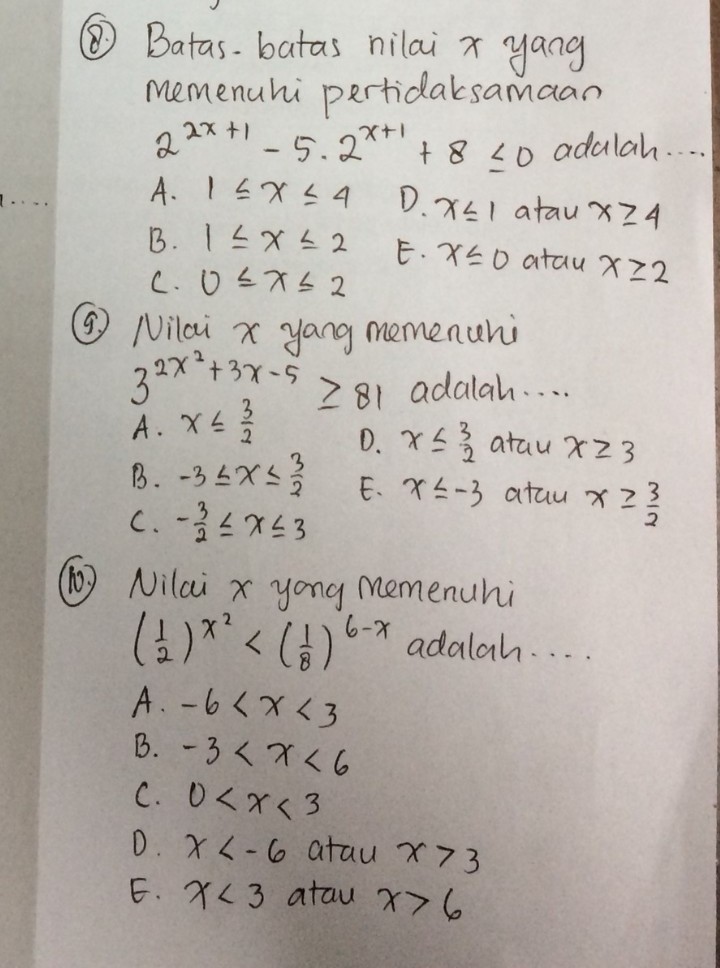 ....
8. Batas-batas nilai x yang
memenuhi pertidaksamaan
2^{2x+1} - 5.2^{x+1} + 8 ≤ 0 adalah....
A. 1 ≤ x ≤ 4 D. x ≤ 1 atau x ≥ 4
B. 1 ≤ x ≤ 2 E. x ≤ 0 atau x ≥ 2
C. 0 ≤ x ≤ 2
9. Nilai x yang memenuhi
3^{2x²+3x-5} ≥ 81 adalah....
A. x ≤ 3/2 D. x ≤ 3/2 atau x ≥ 3
B. -3 ≤ x ≤ 3/2 E. x ≤ -3 atau x ≥ 3/2
C. -3/2 ≤ x ≤ 3
10. Nilai x yang memenuhi
(1/2)^{x²} < (1/8)^{6-x} adalah....
A. -6 < x < 3
B. -3 < x < 6
C. 0 < x < 3
D. x < -6 atau x > 3
E. x < 3 atau x > 6